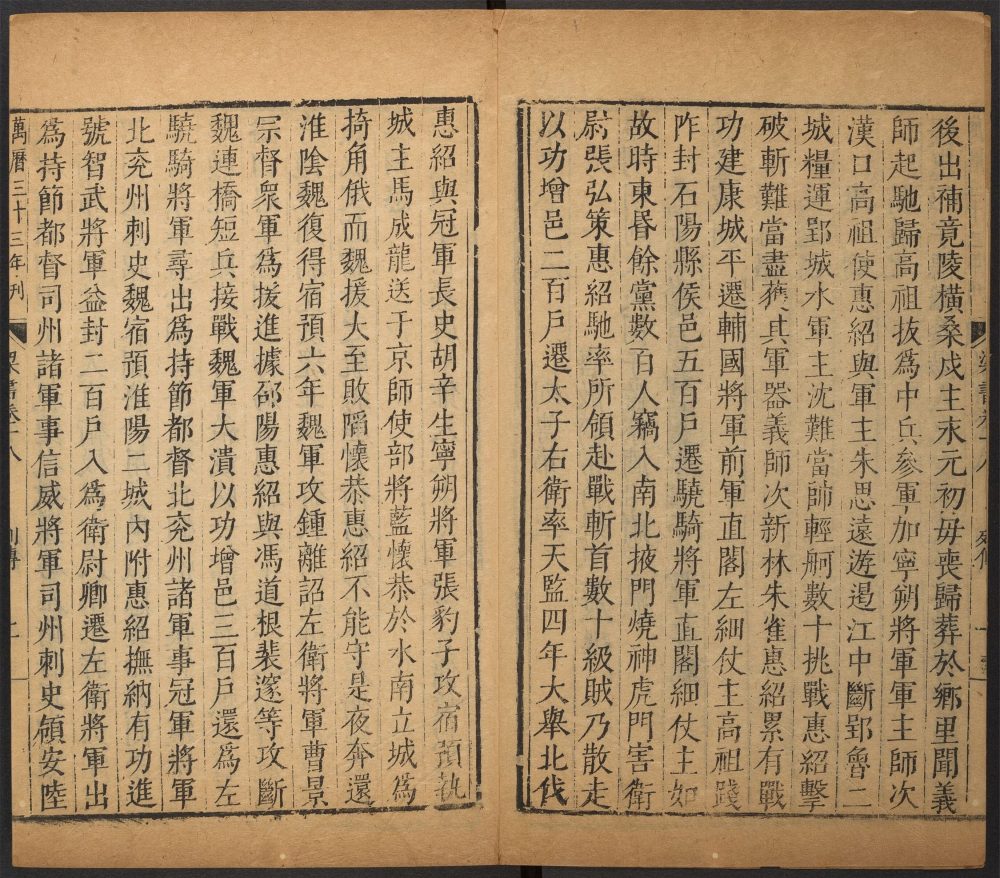 後出補竟陵橫桑戍主永元初母喪歸葬於鄉里聞義
師起馳歸高祖拔爲中兵參軍加寧朔將軍軍主師次
漢口高祖使惠紹與軍主朱思遠遊遏江中斷郢魯二
城糧運郢城水軍主沈難當帥輕舸數十挑戰惠紹擊
破斬難當盡獲其軍器義師次新林朱雀惠紹累有戰
功建康城平遷輔國將軍前軍直閣左細仗主高祖踐
阼封石陽縣侯邑五百戶遷驍騎將軍直閣細仗主如
故時東昏餘黨數百人竊入南北掖門燒神虎門害衛
尉張弘策惠紹馳率所領赴戰斬首數十級賊乃散走
以功增邑二百戶遷太子右衛率天監四年大舉北伐
惠紹與冠軍長史胡辛生寧朔將軍張豹子攻宿預執
城主馬成龍送于京師使部將藍懷恭於水南立城爲
掎角俄而魏援大至敗陷懷恭惠紹不能守是夜奔還
淮陰魏復得宿預六年魏軍攻鍾離詔左衛將軍曹景
宗督衆軍爲援進據邵陽惠紹與馮道根裴邃等攻斷
魏連橋短兵接戰魏軍大潰以功增邑三百戶還爲左
驍騎將軍尋出爲持節都督北兗州諸軍事冠軍將軍
北兗州刺史魏宿預淮陽二城內附惠紹撫納有功進
號智武將軍益封二百戶入爲衛尉卿遷左衛將軍出
爲持節都督司州諸軍事信威將軍司州刺史領安陸
萬曆三十三年刊 梁書卷十八 列傳 二